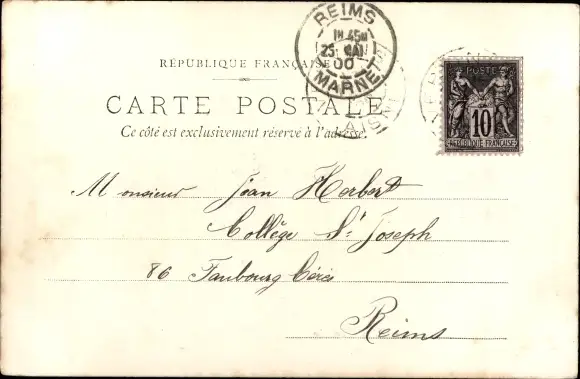 REIMS
25 MAI
00
MARNE
RÉPUBLIQUE FRANÇAISE
CARTE POSTALE
Ce côté est exclusivement réservé à l'adresse.
POSTE
10
RÉPUBLIQUE FRANÇAISE
AISNE
Monsieur Jean Herbert
Collège St Joseph
86 Faubourg Cérès
Reims